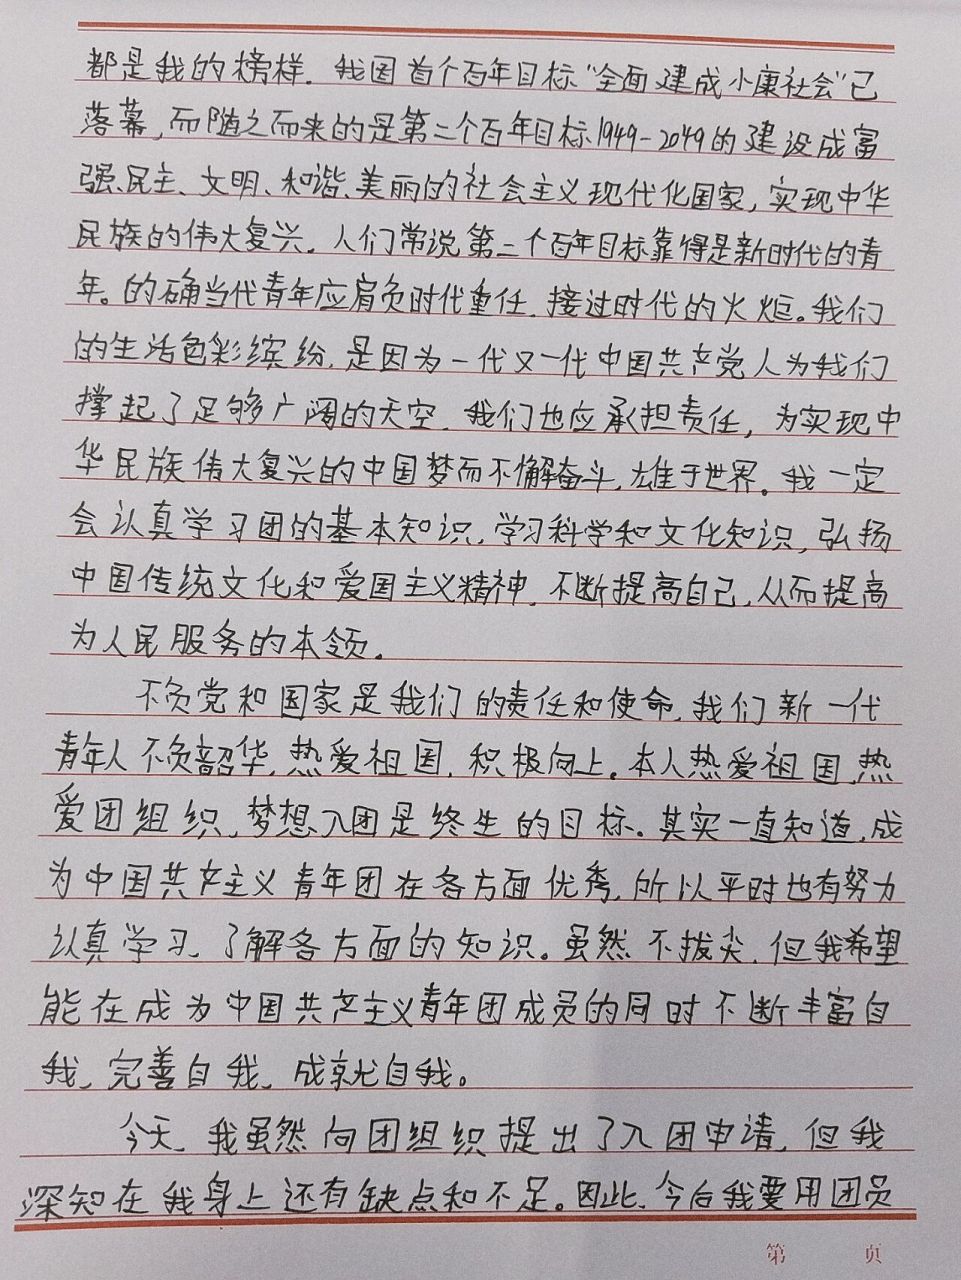 都是我的榜样.我国首个百年目标"全面建成小康社会"已
落幕,而随之而来的是第二个百年目标1949-2049的建设成富
强、民主、文明、和谐、美丽的社会主义现代化国家,实现中华
民族的伟大复兴.人们常说第二个百年目标靠得是新时代的青
年。的确当代青年应肩负时代重任.接过时代的火炬。我们
的生活色彩缤纷,是因为一代又一代中国共产党人为我们
撑起了足够广阔的天空.我们也应承担责任,为实现中
华民族伟大复兴的中国梦而不懈奋斗,雄于世界。我一定
会认真学习团的基本知识,学习科学和文化知识,弘扬
中国传统文化和爱国主义精神.不断提高自己,从而提高
为人民服务的本领。
不负党和国家是我们的责任和使命,我们新一代
青年人不负韶华,热爱祖国,积极向上。本人热爱祖国,热
爱团组织,梦想入团是终生的目标。其实一直知道,成
为中国共产主义青年团在各方面优秀,所以平时也有努力
认真学习,了解各方面的知识。虽然不拔尖,但我希望
能在成为中国共产主义青年团成员的同时不断丰富自
我,完善自我,成就自我。
今天,我虽然向团组织提出了入团申请,但我
深知在我身上还有缺点和不足。因此,今后我要用团员
第 页